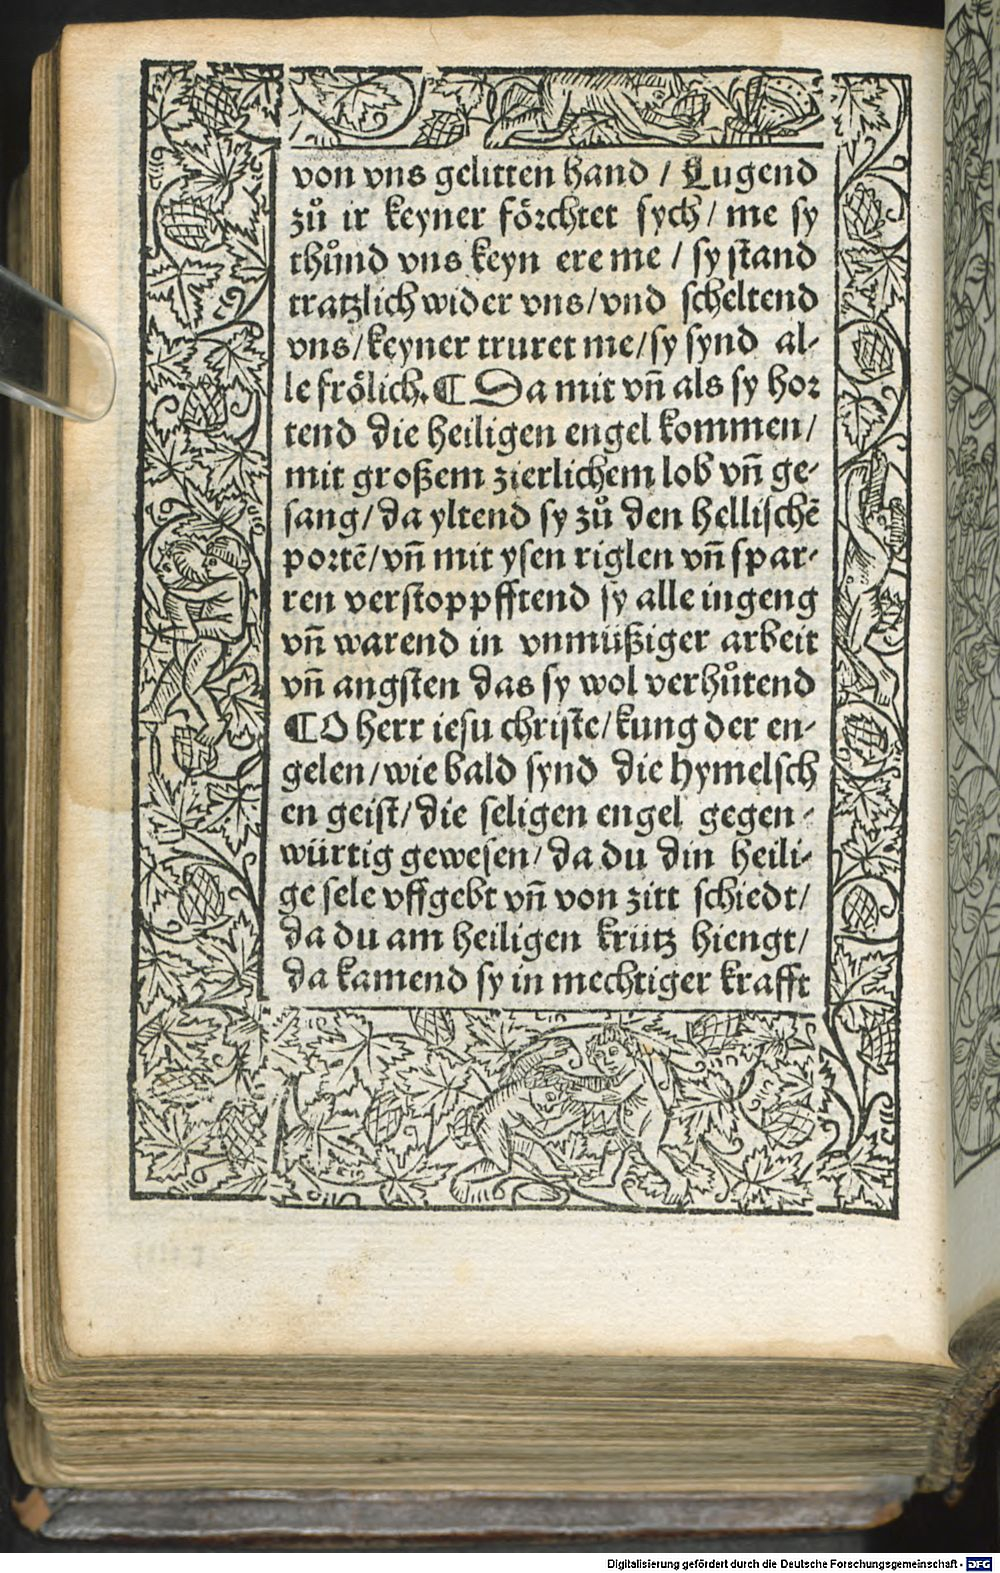 von vns gelitten hand / Lugend
zů ir keyner förchtet sych / me sy
thůnd vns keyn ere me / sy stand
tratzlich wider vns / vnd scheltend
vns / keyner truret me / sy synd al-
le frölich. ¶ Da mit vn̄ als sy hor
tend die heiligen engel kommen /
mit großem zierlichem lob vn̄ ge-
sang / da yltend sy zů den hellischē
portē / vn̄ mit ysen riglen vn̄ spar-
ren verstoppfftend sy alle ingeng
vn̄ warend in vnmüßiger arbeit
vn̄ angsten das sy wol verhůtend
¶ O herr iesu christe / kung der en-
gelen / wie bald synd die hymelsch
en geist / die seligen engel gegen-
würtig gewesen / da du din heili-
ge sele vffgebt vn̄ von zitt schiedt /
da du am heiligen krütz hiengt /
da kamend sy in mechtiger krafft
Digitalisierung gefördert durch die Deutsche Forschungsgemeinschaft - DFG